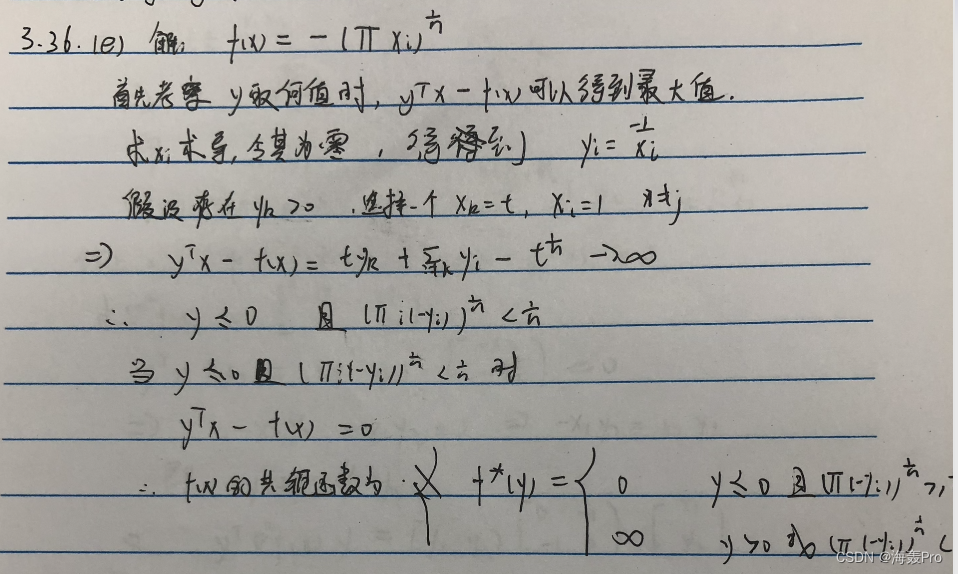 3.36.(e) 解: f(x) = - (π xi)^{1/n}
首先考察 y取何值时, yᵀx - f(x) 可以得到最大值.
求xi求导, 令其为零, 得到 yi = -1/xi
假设存在 yk > 0 .选择一个 xk = t, xi = 1
⇒) yᵀx - f(x) = tyk + Σ_{i≠k} yi - t^{1/n} → ∞
∴ y ≤ 0 且 (π i(-yi))^{1/n} < 1/n
当 y ≤ 0 且 (π i(-yi))^{1/n} < 1/n 时
yᵀx - f(x) = 0
∴ f(x) 的共轭函数为 f*(y) = { 0 y ≤ 0 且 (π(-yi))^{1/n} >,
∞ y > 0 或 (π(-yi))^{1/n} <
CSDN @海轰Pro